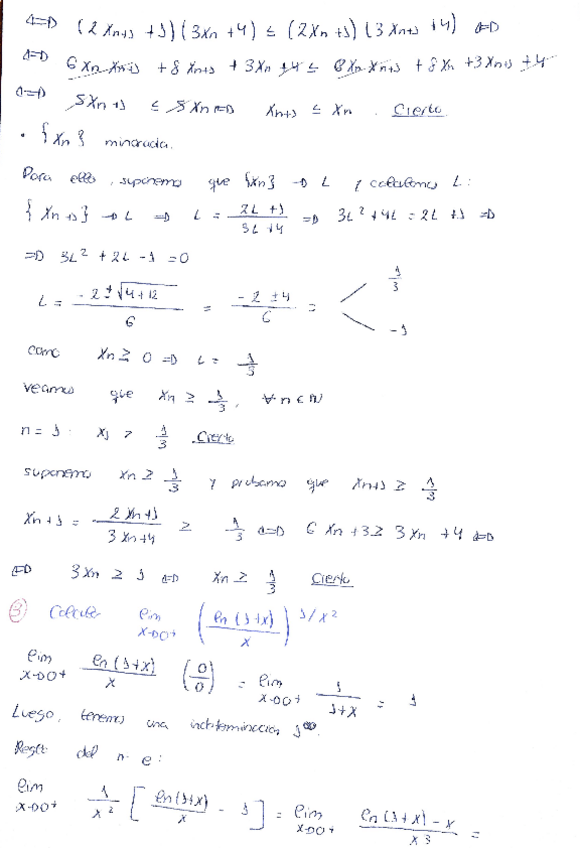 ⇔ (2x_{n+1} + 1)(3x_n + 4) ≤ (2x_n + 1)(3x_{n+1} + 4) ⇔
⇔ 6x_n x_{n+1} + 8x_{n+1} + 3x_n + 4 ≤ 6x_n x_{n+1} + 8x_n + 3x_{n+1} + 4
⇔ 5x_{n+1} ≤ 5x_n ⇔ x_{n+1} ≤ x_n . Cierto
• {x_n} minorada.
Para ello, suponemos que {x_n} → L y calculamos L:
{x_{n+1}} → L ⇒ L = (2L + 1)/(3L + 4) ⇒ 3L² + 4L = 2L + 1 ⇒
⇒ 3L² + 2L - 1 = 0
L = (-2 ± √(4 + 12))/6 = (-2 ± 4)/6 = 1/3
-1
como x_n ≥ 0 ⇒ L = 1/3
veamos que x_n ≥ 1/3, ∀n ∈ ℕ
n = 1. x_1 > 1/3 Cierto
suponemos x_n ≥ 1/3 y probamos que x_{n+1} ≥ 1/3
x_{n+1} = (2x_n + 1)/(3x_n + 4) ≥ 1/3 ⇔ 6x_n + 3 ≥ 3x_n + 4 ⇔
⇔ 3x_n ≥ 1 ⇔ x_n ≥ 1/3 Cierto
③ Calcular lim x→0+ (ln(1+x)/x)^{1/x²}
lim x→0+ ln(1+x)/x (0/0) = lim x→0+ 1/(1+x) = 1
Luego, tenemos una indeterminación 1^∞.
Regla del n. e:
lim x→0+ 1/x² [ln(1+x)/x - 1] = lim x→0+ (ln(1+x) - x)/x³ =